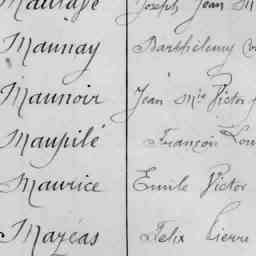 Joseph Jean M
Maunay Barthélemy
Maunoir Jean Mie Victor
Maupilé François Lou
Maurice Emile Victor
Mazéas Felix Pierre